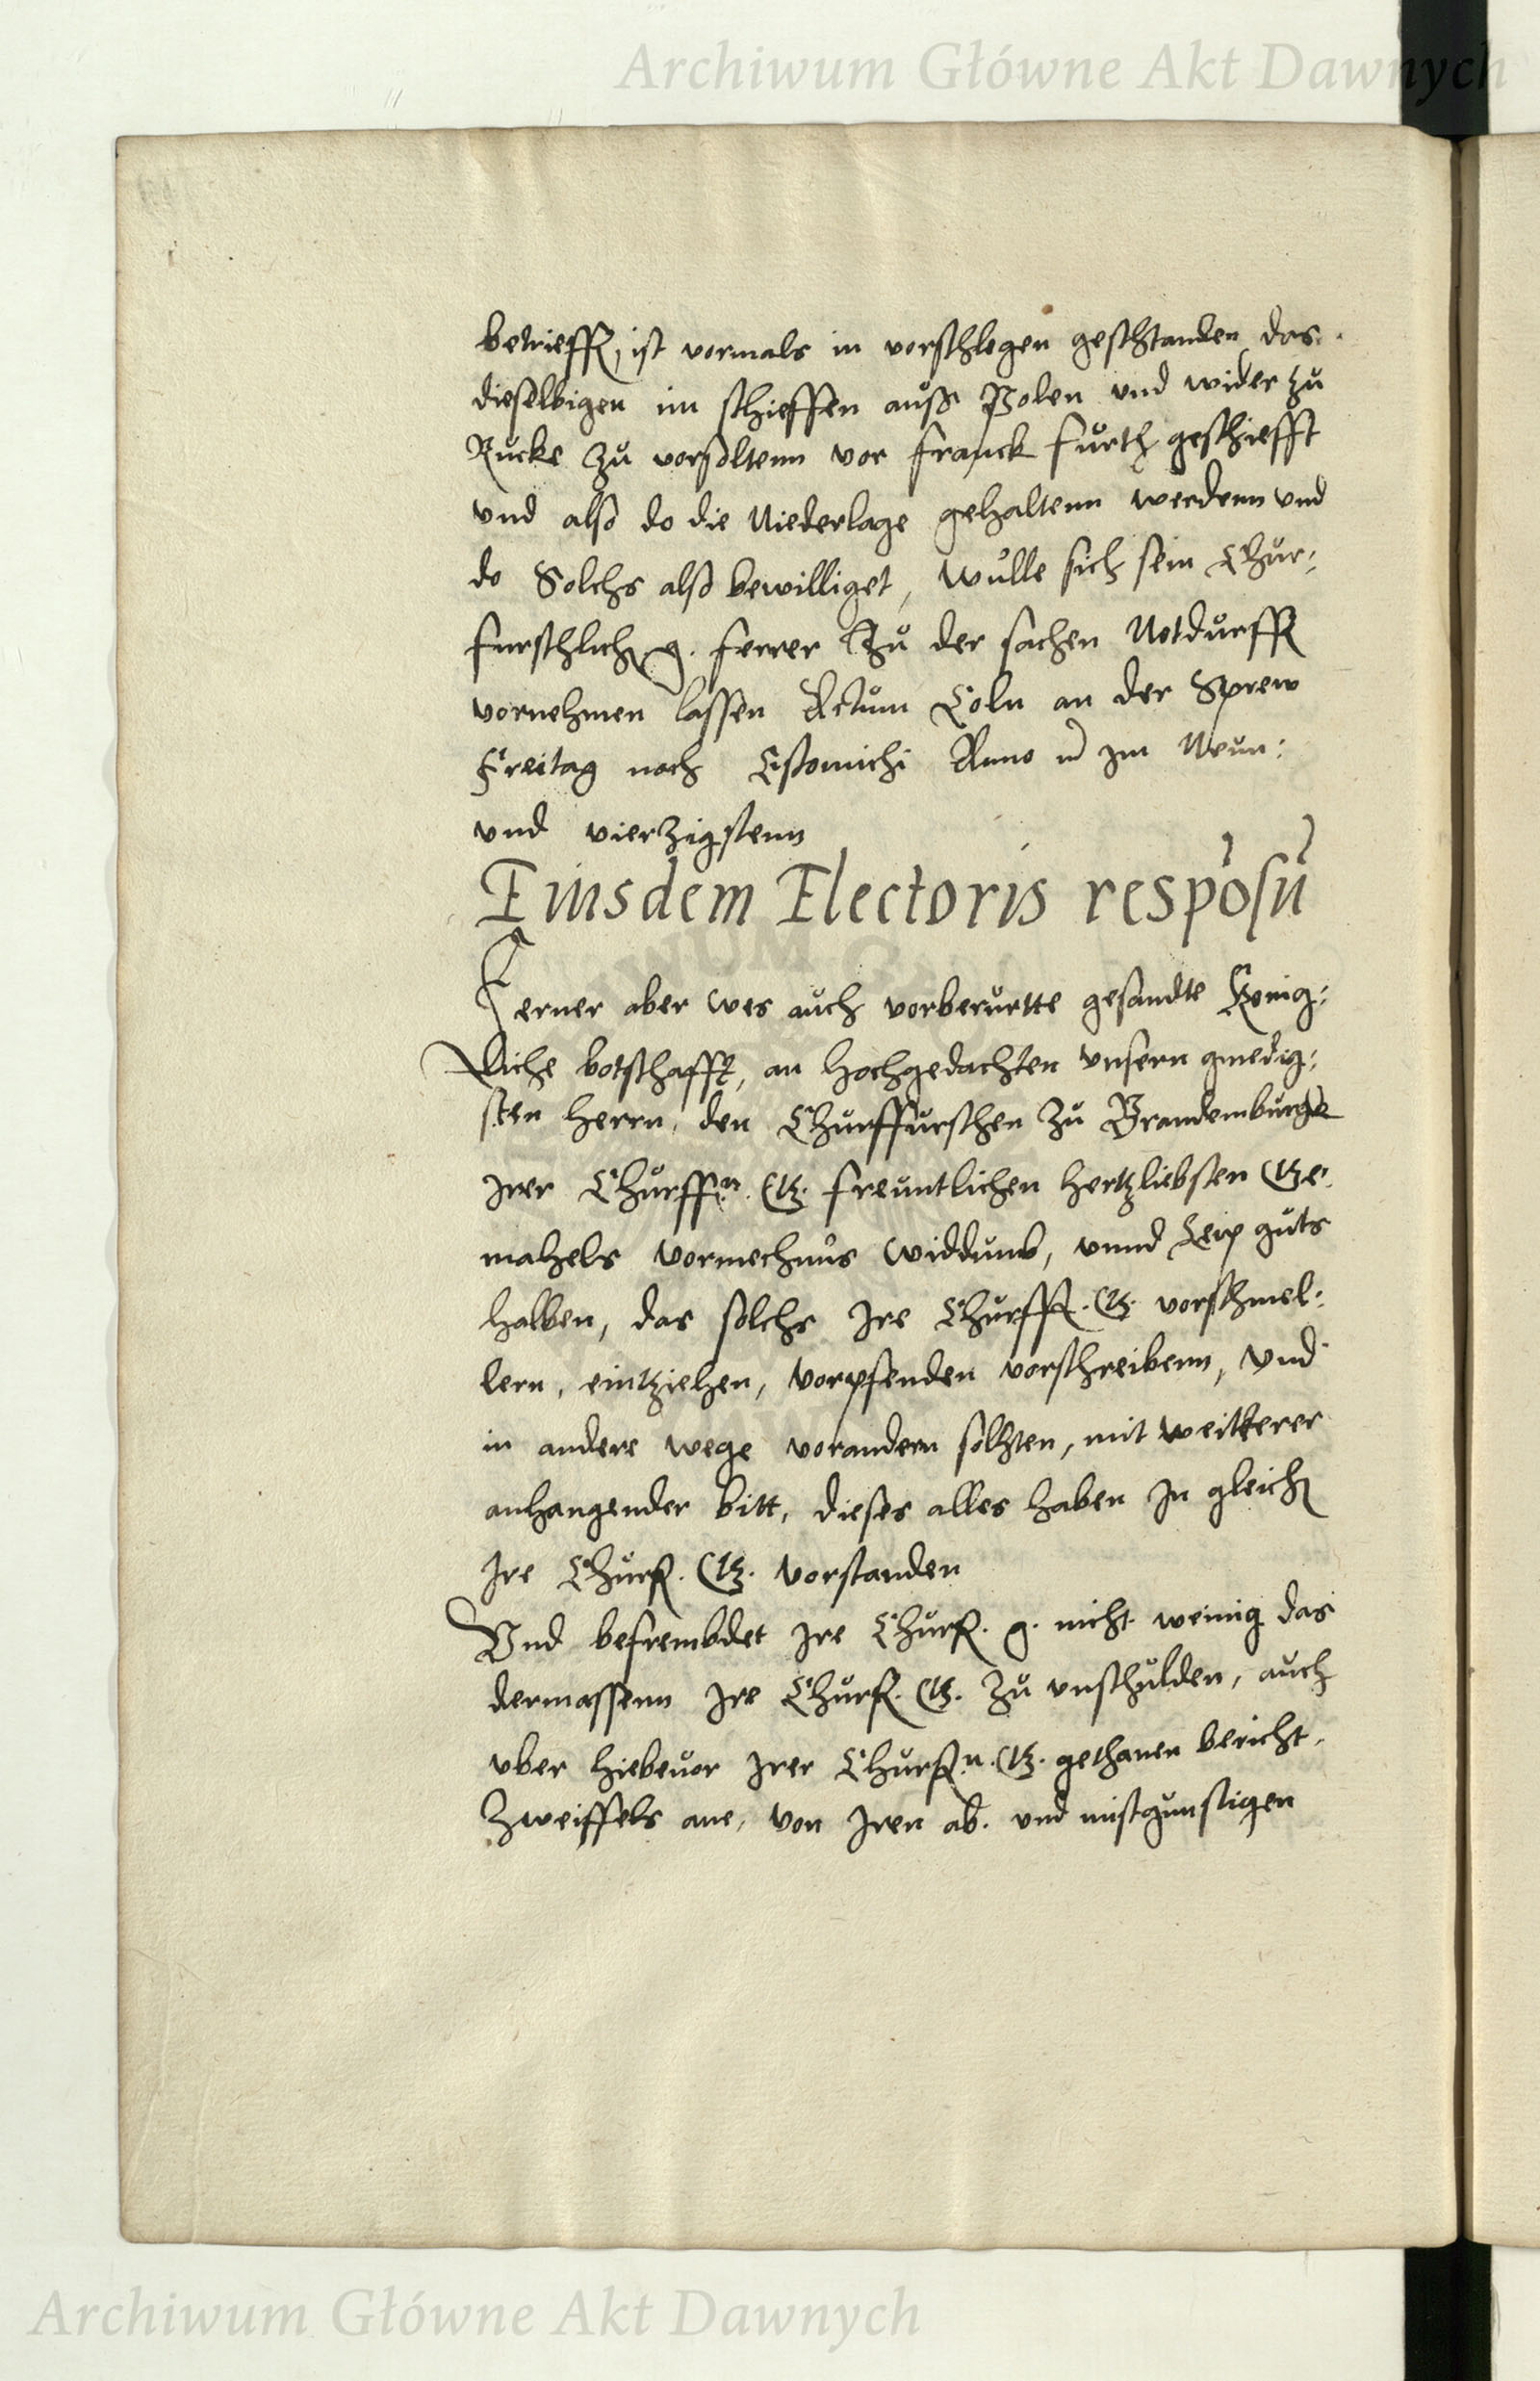 Archiwum Główne Akt Dawnych
betrieff, ist vormals in vorschlegen geschtanden das
dieselbigen im schieffen auß Polen und wider zu
Rucke zu vorsoltenn vor franck furth geschiefft
vnd also do die Niederlage gehaltenn werdenn vnd
do Solchs also bewilliget, wulle sich sein Chur:
furschlich g. ferrer zu der sachen Notdurfft
vornehmen lassen Actum Coln an der Sprew
Freitag nach Estomichi Anno im Neun:
vnd vierzigstenn
Eiusdem Electoris respõsũ
Ferner aber wes auch vorberurtte gesandte Konig:
liche botschafft, an hochgedachten vnsern gnedig:
sten herrn, den Churffurschen zu Brandemburgk
Irer Churff.n. G. freuntlichen hertzliebsten Ge:
mahels vormechnus widdumb, vnnd Leip guts
halben, das solchs Ire Churff. G. vorschmel:
lern, eintziehen, vorpfenden vorschreibenn, vnd
in andere wege vorandern solten, mit weitterer
anhangender bitt, dieses alles haben In gleich
Ire Churf. G. vorstanden
Vnd befrembdet Ire Churf. g. nicht weinig das
dermassenn Ire Churf. G. zu vnschulden, auch
vber hiebeuor Irer Churf.n. G. gethanen bericht,
Zweiffels ane, von Iren ab. vnd missgunstigen
Archiwum Główne Akt Dawnych